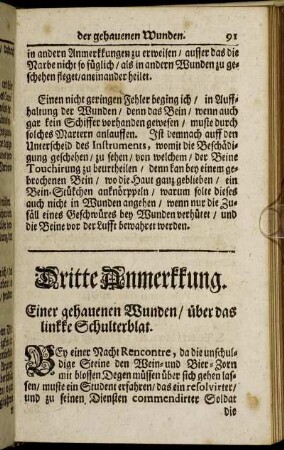 der gehauenen Wunden. 91
in andern Anmerkkungen zu erweisen / ausser das die
Narbe nicht so füglich / als in andern Wunden zu ge-
schehen fleget / aneinander heilet.
Einen nicht geringen Fehler beging ich / in Auff-
haltung der Wunden / denn das Bein / wenn auch
gar kein Schiffer vorhanden gewesen / muste durch
solches Martern anlauffen. Ist demnach auff den
Unterscheid des Instruments, womit die Beschädi-
gung geschehen / zu sehen / von welchem / der Beine
Touchirung zu beurtheilen / denn kan bey einem ge-
brochenen Bein / wo die Haut gantz geblieben / ein
Bein-Stükchen anknörppeln / warum solte dieses
auch nicht in Wunden angehen / wenn nur die Zu-
fäll eines Geschwüres bey Wunden verhütet / und
die Beine vor der Lufft bewahret werden.
Dritte Anmerkkung.
Einer gehauenen Wunden / über das
linkke Schulterblat.
BEy einer Nacht Rencontre, da die unschul-
dige Steine den Wein- und Bier-Zorn
mit blossen Degen müssen über sich gehen las-
sen / muste ein Student erfahren / das ein resolvirter /
und zu seinen Diensten commendirter Soldat
die